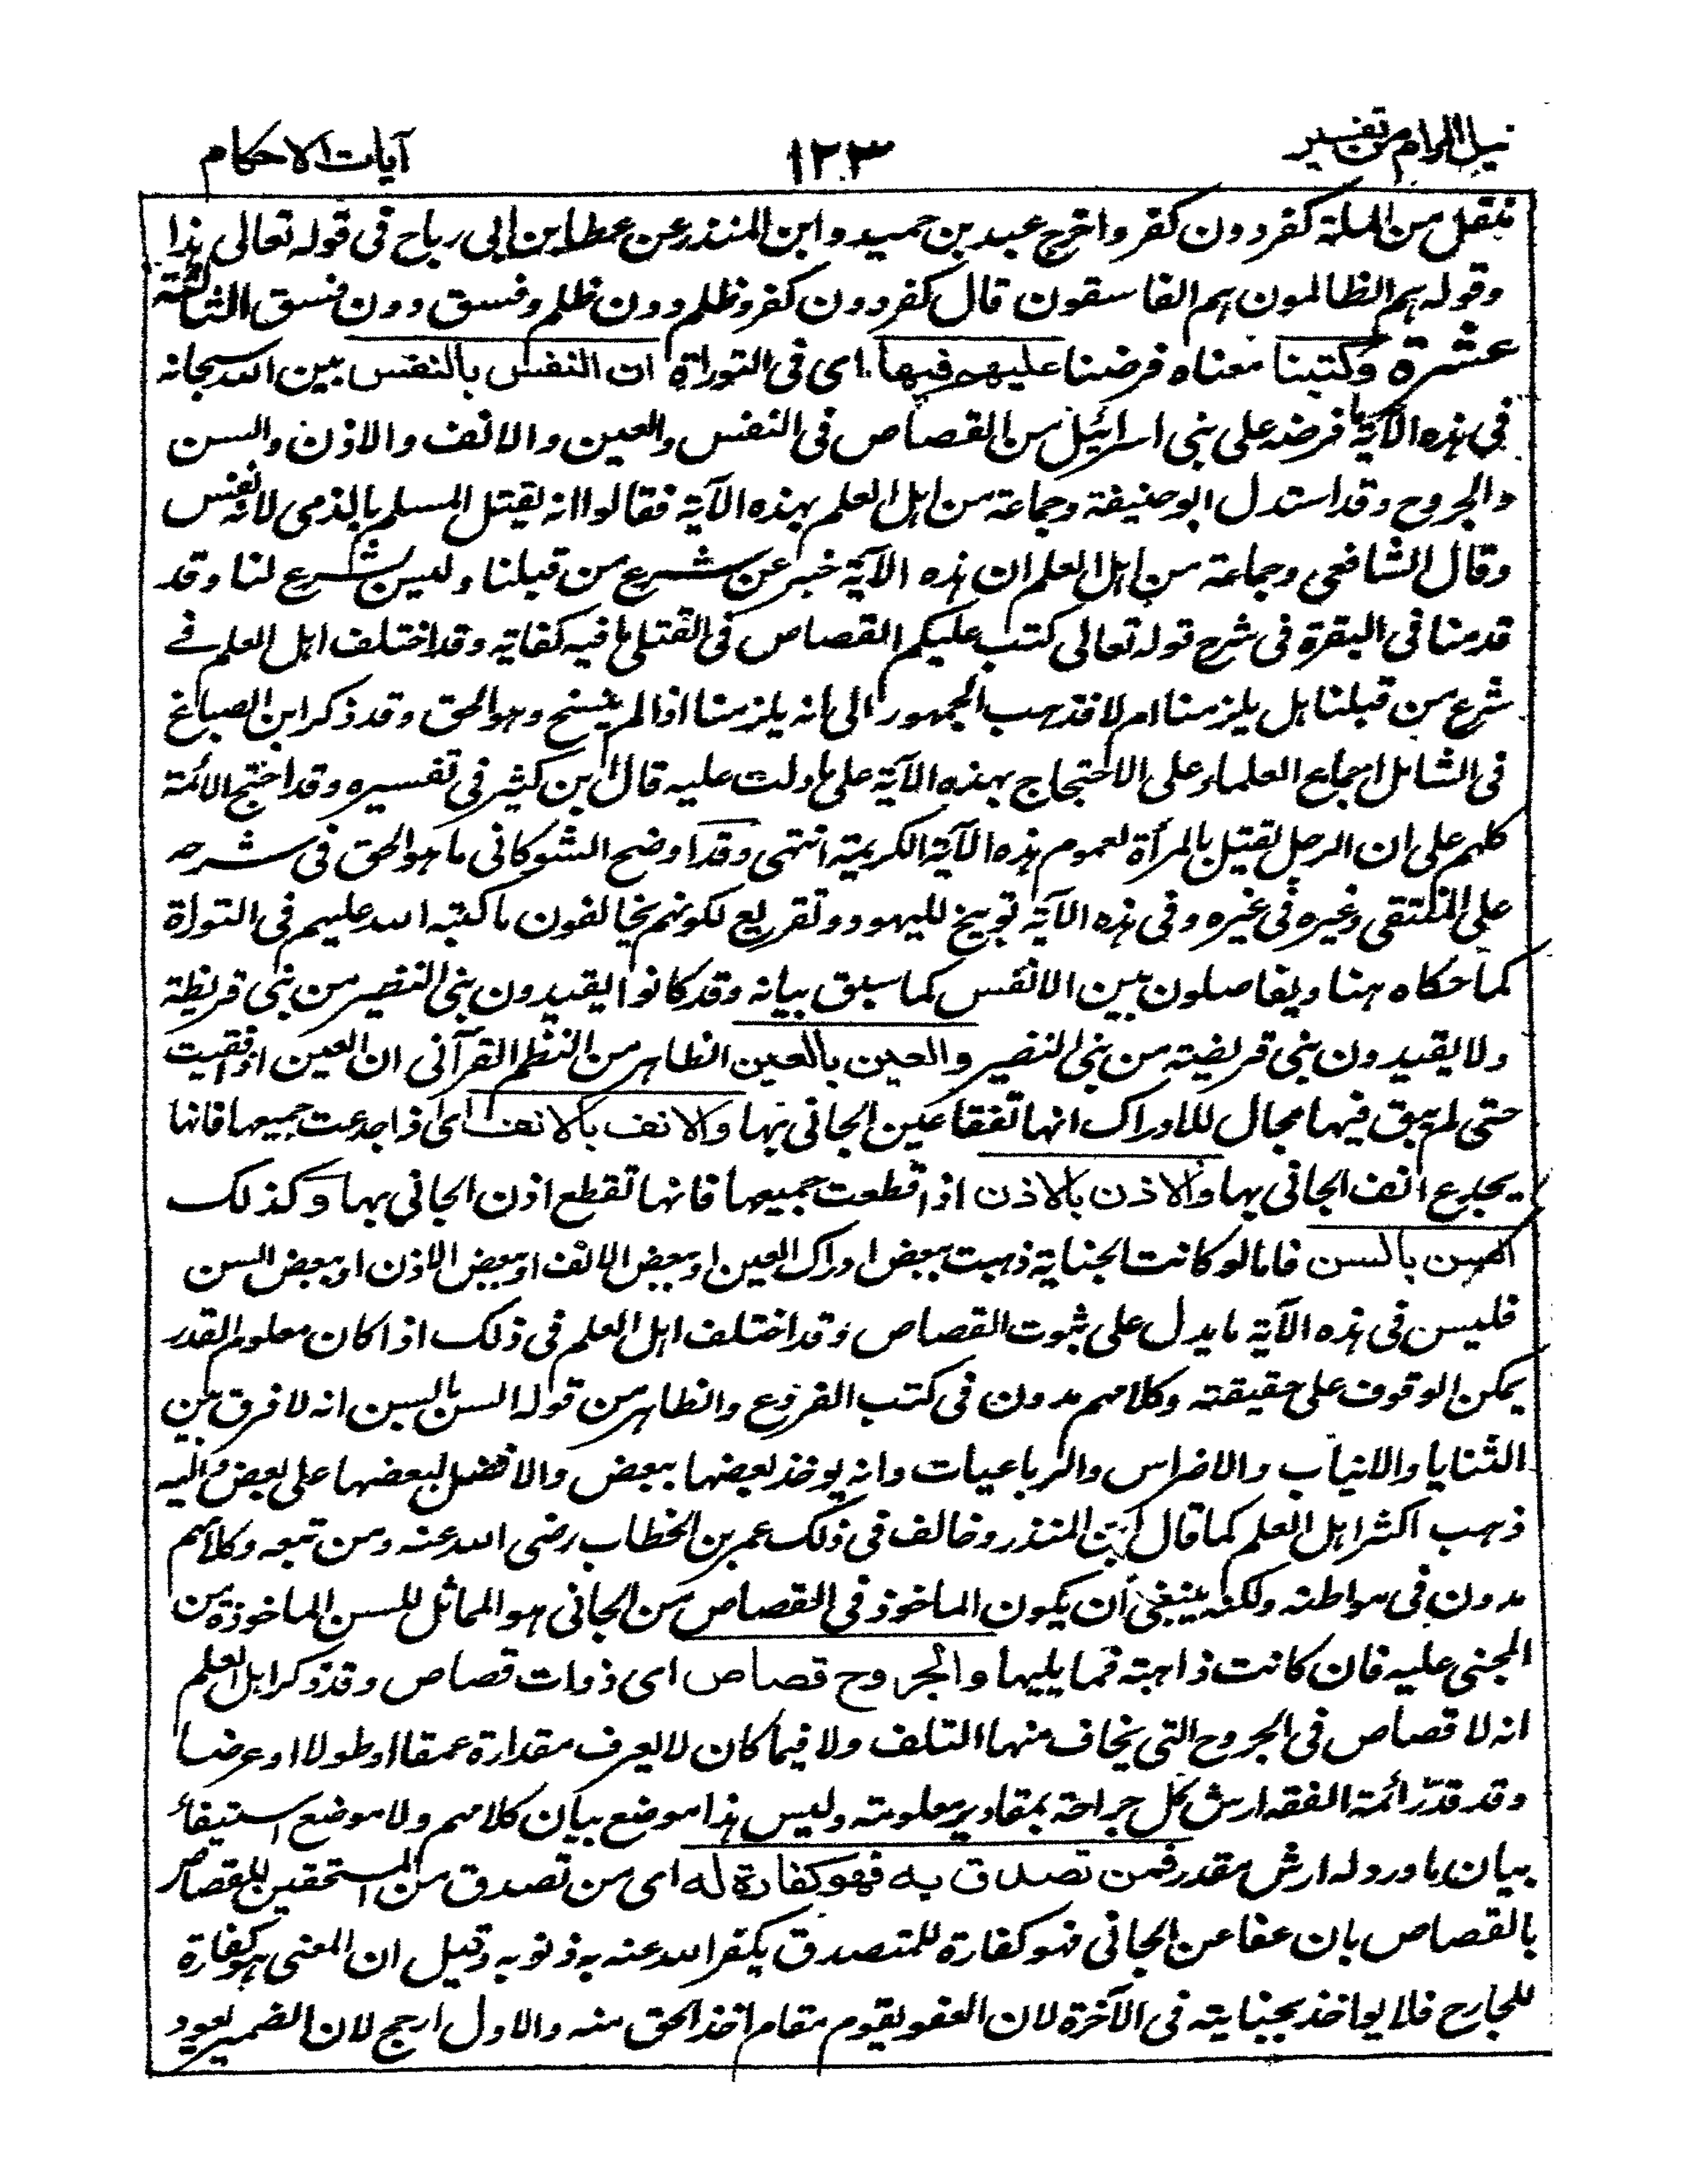 نيل المرام من تفسير
١٢٣
آيات الاحكام
تنقل من الملة كفر دون كفر واخرج عبد بن حميد وابن المنذر عن عطا بن ابى رباح فى قوله تعالى هذا
وقوله هم الظالمون هم الفاسقون قال كفر دون كفر وظلم دون ظلم وفسق دون فسق الثالثة
عشرة وكتبنا معناه فرضنا عليهم فيها اى فى التوراة ان النفس بالنفس بين الله سبحانه
فى هذه الآية ما فرضه على بنى اسرائيل من القصاص فى النفس والعين والانف والاذن والسن
والجروح وقد استدل ابو حنيفة وجماعة من اهل العلم بهذه الآية فقالوا انه يقتل المسلم بالذمى لانه نفس
وقال الشافعى وجماعة من اهل العلم ان هذه الآية خبر عن شرع من قبلنا وليس بشرع لنا وقد
قدمنا فى البقرة فى شرح قوله تعالى كتب عليكم القصاص فى القتلى ما فيه كفاية وقد اختلف اهل العلم فى
شرع من قبلنا هل يلزمنا ام لا فذهب الجمهور الى انه يلزمنا اذا لم ينسخ وهو الحق وقد ذكر ابن الصباغ
فى الشامل اجماع العلماء على الاحتجاج بهذه الآية على ما دلت عليه قال ابن كثير فى تفسيره وقد احتج الائمة
كلهم على ان الرجل يقتل بالمرأة لعموم هذه الآية الكريمة انتهى وقد اوضح الشوكانى ما هو الحق فى شرحه
على المنتقى وغيره فى غيره وفى هذه الآية توبيخ لليهود وتقريع لكونهم يخالفون ما كتبه الله عليهم فى التوراة
كما حكاه هنا ويفاصلون بين الانفس كما سبق بيانه وقد كانوا يقيدون بنى النضير من بنى قريظة
ولا يقيدون بنى قريضة من بنى النضير والعين بالعين الظاهر من النظم القرآنى ان العين اذا فقئت
حتى لم يبق فيها مجال للادراك انها تفقأ عين الجانى بها والانف بالانف اى اذا جدعت جميعها فانها
يجدع انف الجانى بها والاذن بالاذن اذا قطعت جميعها فانها تقطع اذن الجانى بها وكذلك
السن بالسن فاما لو كانت الجناية ذهبت ببعض ادراك العين او ببعض الانف او ببعض الاذن او ببعض السن
فليس فى هذه الآية ما يدل على ثبوت القصاص وقد اختلف اهل العلم فى ذلك اذا كان معلوم القدر
يمكن الوقوف على حقيقته وكلامهم مدون فى كتب الفروع والظاهر من قوله السن بالسن انه لا فرق بين
الثنايا والانياب والاضراس والرباعيات وانه يوخذ بعضها ببعض والا فضل لبعضها على بعض واليه
ذهب اكثر اهل العلم كما قال ابن المنذر وخالف فى ذلك عمر بن الخطاب رضى الله عنه ومن تبعه وكلامهم
مدون فى مواطنه ولكنه ينبغى ان يكون الماخوذ فى القصاص من الجانى هو المماثل للسن الماخوذة من
المجنى عليه فان كانت ذاهبة فما يليها والجروح قصاص اى ذوات قصاص وقد ذكر اهل العلم
انه لا قصاص فى الجروح التى يخاف منها التلف ولا فيما كان لا يعرف مقداره عمقا او طولا او عرضا
وقد قدّر ائمة الفقه ارش كل جراحة بمقادير معلومة وليس هذا موضع بيان كلامهم ولا موضع استيفاء
بيان ما ورد له ارش مقدر فمن تصدق به فهو كفارة له اى من تصدق من المستحقين للقصاص
بالقصاص بان عفا عن الجانى فهو كفارة للمتصدق يكفر الله عنه به ذنوبه وقيل ان المعنى هو كفارة
للجارح فلا يواخذ بجنايته فى الآخرة لان العفو يقوم مقام اخذ الحق منه والاول ارجح لان الضمير يعود